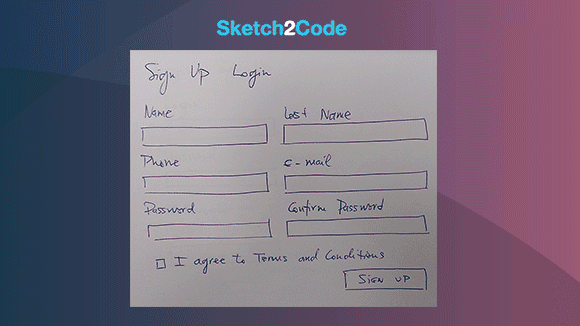 Sketch2Code
Sign Up Login
Name Last Name
Phone e-mail
Password Confirm Password
I agree to Terms and Conditions
SIGN UP